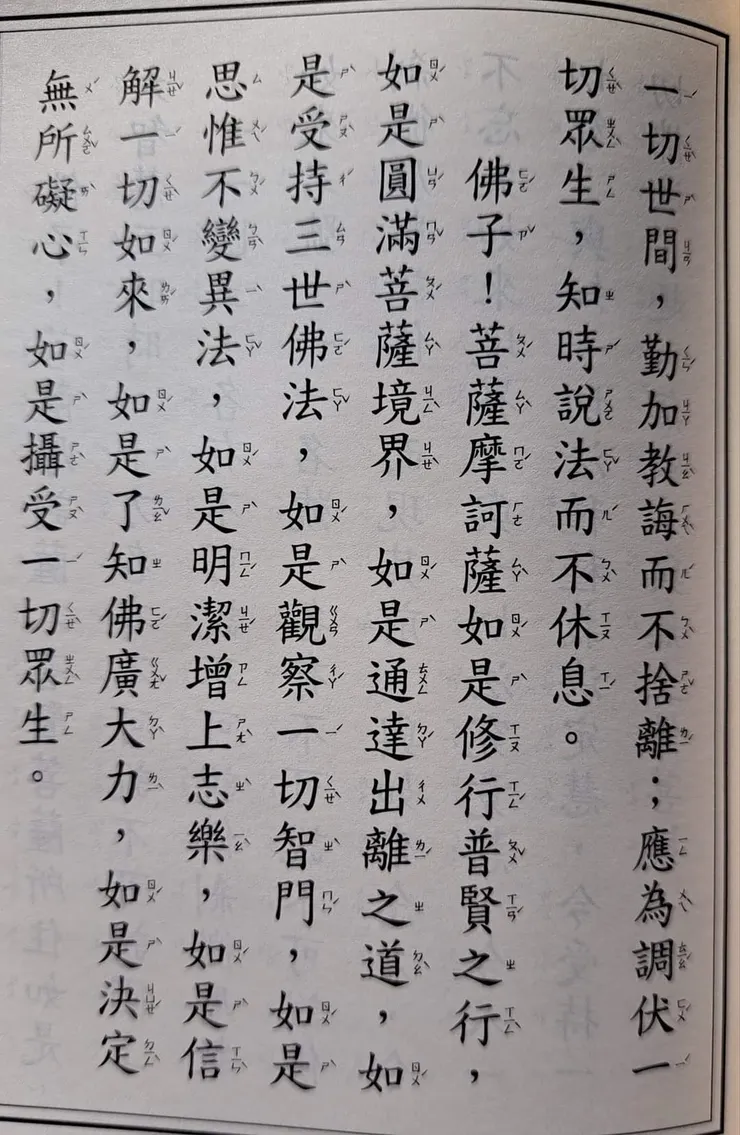 一切世間，勤加教誨而不捨離；應為調伏一
切眾生，知時說法而不休息。
佛子！菩薩摩訶薩如是修行普賢之行，
如是圓滿菩薩境界，如是通達出離之道，如
是受持三世佛法，如是觀察一切智門，如是
思惟不變異法，如是明潔增上志樂，如是信
解一切如來，如是了知佛廣大力，如是決定
無所礙心，如是攝受一切眾生。